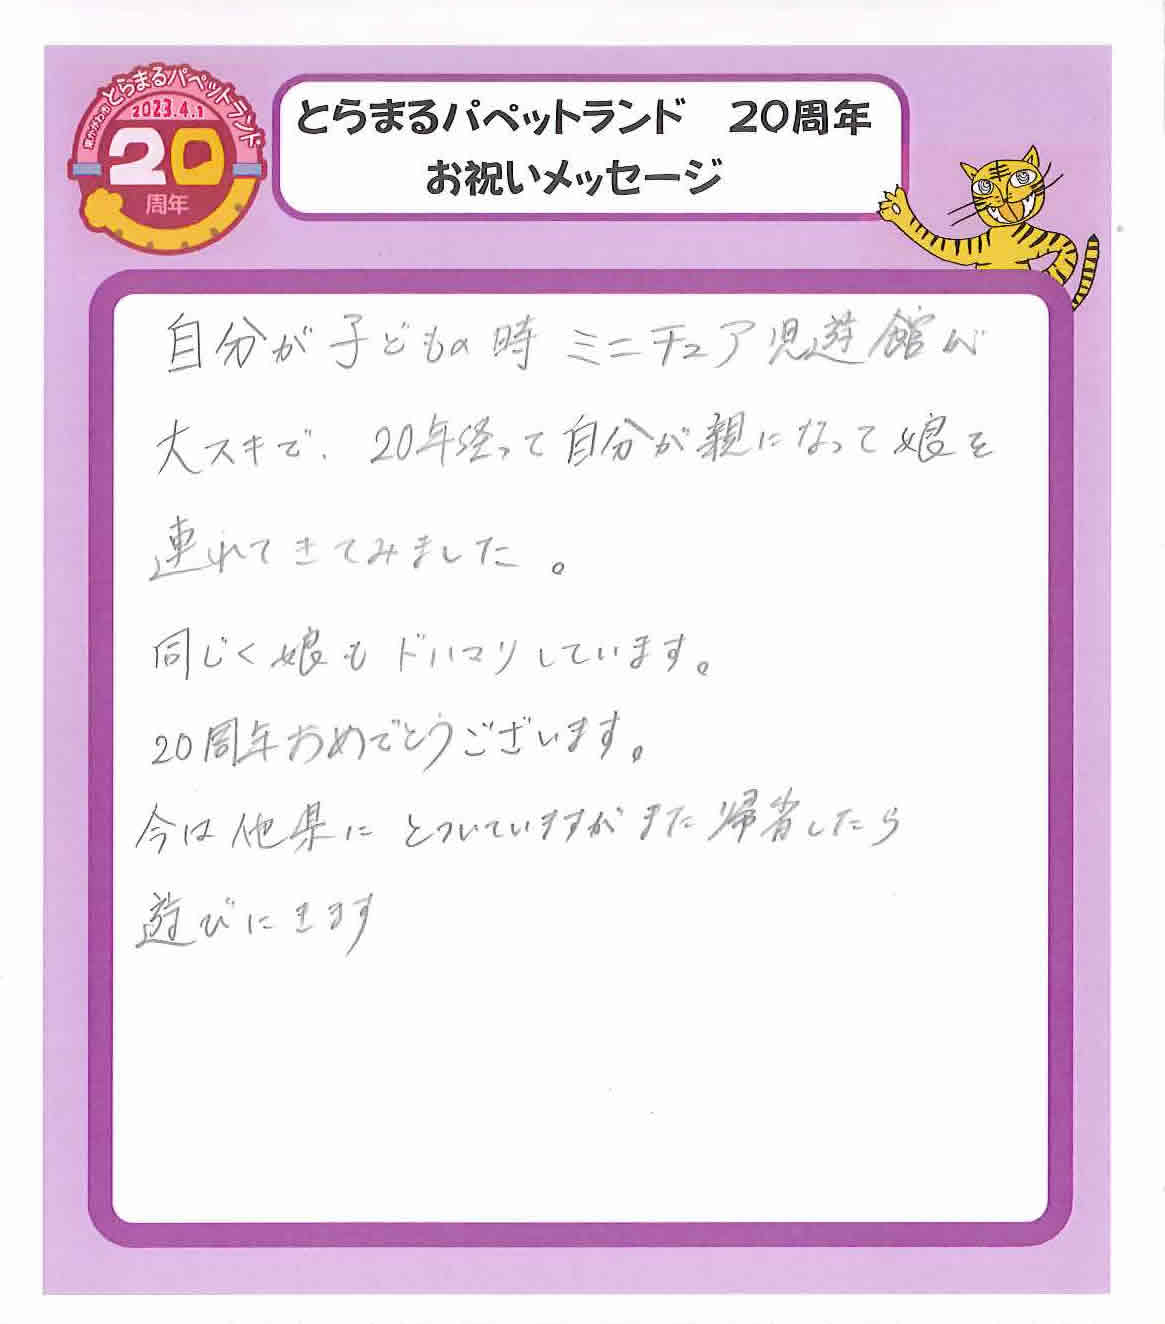 東かがわ市とらまるパペットランド
2023.4.1
20
周年
とらまるパペットランド 20周年
お祝いメッセージ
自分が子どもの時ミニチュア児遊館が
大スキで、20年経って自分が親になって娘を
連れてきてみました。
同じく娘もドハマりしています。
20周年おめでとうございます。
今は他県にとついていますがまた帰省したら
遊びにきます